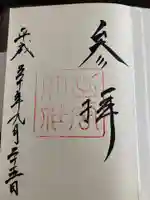 参拝
平成三十年九月二十五日